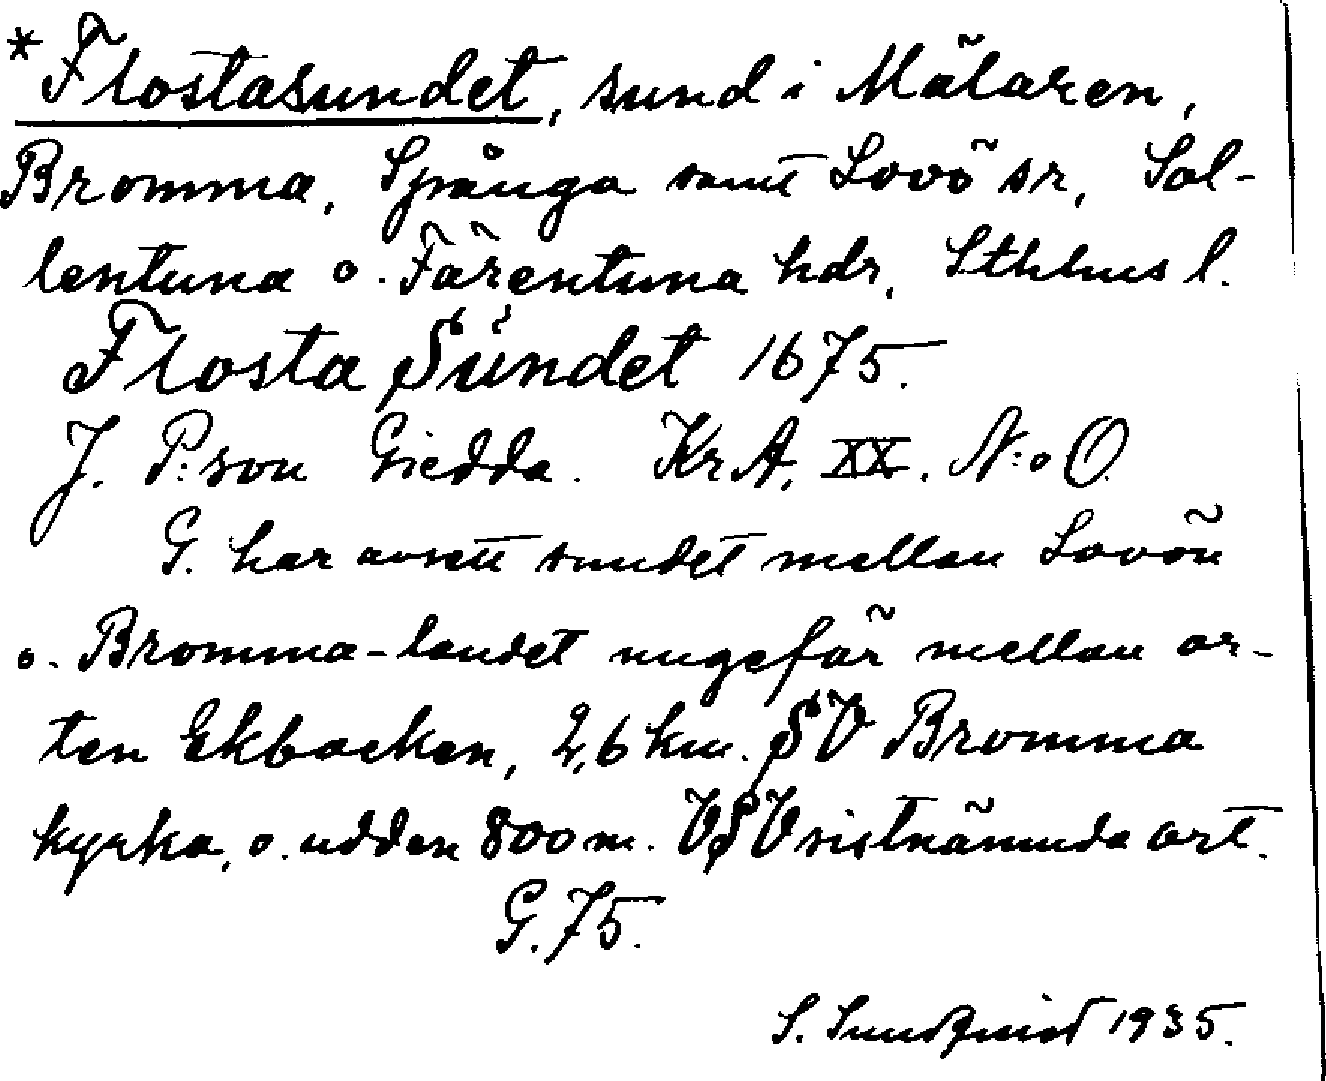 *Flostasundet, sund i Mälaren,
Bromma, Spånga samt Lovö sr, Sol-
lentuna o. Färentuna hdr, Sthlms l.
Flosta Sundet 1675.
J. P:son Giedda. KrA, XX. N:o O.
G. har avsett sundet mellan Lovön
o. Bromma-landet ungefär mellan or-
ten Ekbacken, 2,6 km. SV Bromma
kyrka, o. udden 800 m. VSV sistnämnda ort.
G. 75.
S. Sundquist 1935.